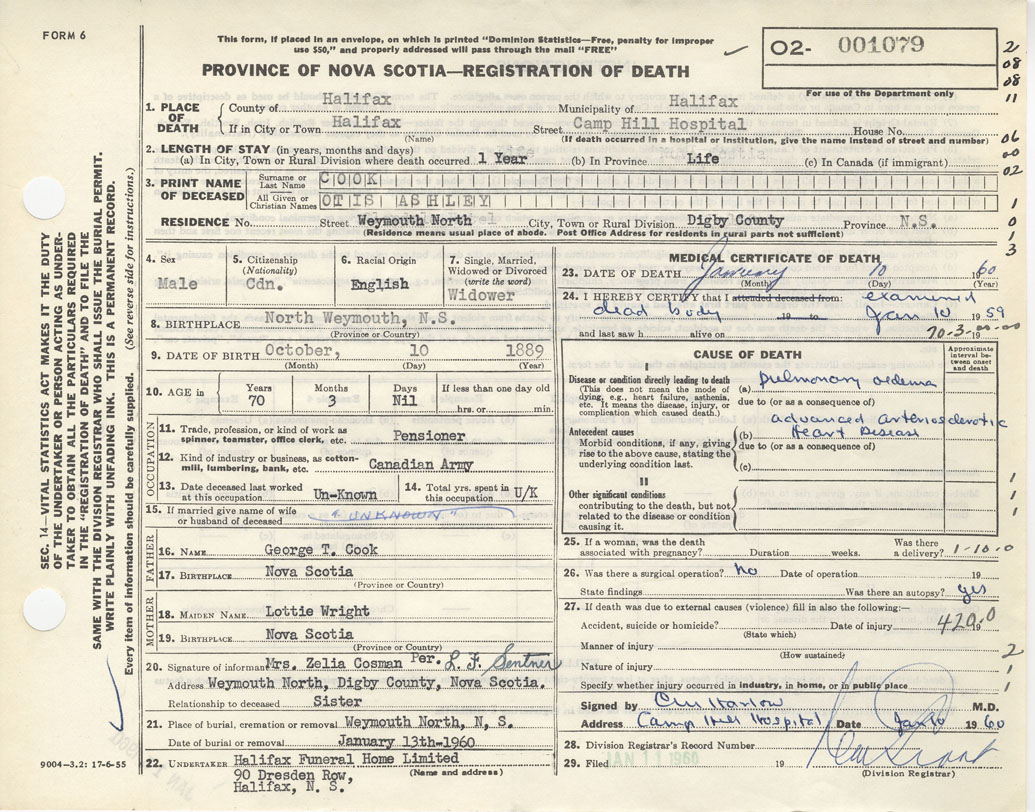 FORM 6
This form, if placed in an envelope, on which is printed "Dominion Statistics—Free, penalty for improper
use $50," and properly addressed will pass through the mail "FREE"
02- 001079
For use of the Department only
PROVINCE OF NOVA SCOTIA—REGISTRATION OF DEATH
2
08
08
11
06
00
02
1
0
1
3
SEC. 14—VITAL STATISTICS ACT MAKES IT THE DUTY
OF THE UNDERTAKER OR PERSON ACTING AS UNDER-
TAKER TO OBTAIN ALL THE PARTICULARS REQUIRED
IN THE "REGISTRATION OF DEATH" AND TO FILE THE
SAME WITH THE DIVISION REGISTRAR WHO SHALL ISSUE THE BURIAL PERMIT.
WRITE PLAINLY WITH UNFADING INK. THIS IS A PERMANENT RECORD.
Every item of information should be carefully supplied. (See reverse side for instructions.)
1. PLACE OF DEATH
County of Halifax Municipality of Halifax
If in City or Town Halifax Street Camp Hill Hospital House No.
(Name) (If death occurred in a hospital or institution, give the name instead of street and number)
2. LENGTH OF STAY (in years, months and days)
(a) In City, Town or Rural Division where death occurred 1 Year (b) In Province Life (c) In Canada (if immigrant)
3. PRINT NAME OF DECEASED
Surname or Last Name COOK
All Given or Christian Names OTIS ASHLEY
RESIDENCE No. Street Weymouth North City, Town or Rural Division Digby County Province N.S.
(Residence means usual place of abode. Post Office Address for residents in rural parts not sufficient)
4. Sex
Male
5. Citizenship
(Nationality)
Cdn.
6. Racial Origin
English
7. Single, Married,
Widowed or Divorced
(write the word)
Widower
8. BIRTHPLACE North Weymouth, N.S.
(Province or Country)
9. DATE OF BIRTH October, 10 1889
(Month) (Day) (Year)
10. AGE in
Years Months Days If less than one day old
70 3 Nil hrs. or min.
OCCUPATION
11. Trade, profession, or kind of work as
spinner, teamster, office clerk, etc. Pensioner
12. Kind of industry or business, as cotton-
mill, lumbering, bank, etc. Canadian Army
13. Date deceased last worked
at this occupation Un-Known
14. Total yrs. spent in
this occupation U/K
15. If married give name of wife
or husband of deceased "UNKNOWN"
FATHER
16. NAME George T. Cook
17. BIRTHPLACE Nova Scotia
(Province or Country)
MOTHER
18. MAIDEN NAME Lottie Wright
19. BIRTHPLACE Nova Scotia
(Province or Country)
20. Signature of informant Mrs. Zelia Cosman Per. L. F. Sentner
Address Weymouth North, Digby County, Nova Scotia.
Relationship to deceased Sister
21. Place of burial, cremation or removal Weymouth North, N. S.
Date of burial or removal January 13th-1960
22. UNDERTAKER Halifax Funeral Home Limited
(Name and address)
90 Dresden Row,
Halifax, N. S.
9004-3.2: 17-6-55
MEDICAL CERTIFICATE OF DEATH
23. DATE OF DEATH January 10 1960
(Month) (Day) (Year)
24. I HEREBY CERTIFY that I attended deceased from: examined
dead body 19 to Jan 10 1959
and last saw h alive on 19
70-3-00-00
CAUSE OF DEATH
Approximate
interval be-
tween onset
and death
I
Disease or condition directly leading to death
(This does not mean the mode of
dying, e.g., heart failure, asthenia,
etc. It means the disease, injury, or
complication which caused death.)
(a) pulmonary oedema
due to (or as a consequence of)
Antecedent causes
Morbid conditions, if any, giving
rise to the above cause, stating the
underlying condition last.
advanced arteriosclerotic
(b) Heart Disease
due to (or as a consequence of)
(c)
II
Other significant conditions
contributing to the death, but not
related to the disease or condition
causing it.
1
1
1
25. If a woman, was the death
associated with pregnancy? Duration weeks. Was there
a delivery? 1-10-0
26. Was there a surgical operation? No Date of operation 19
State findings Was there an autopsy? yes
27. If death was due to external causes (violence) fill in also the following:—
Accident, suicide or homicide? Date of injury 19
(State which)
420.0
Manner of injury 2
(How sustained)
Nature of injury 1
Specify whether injury occurred in industry, in home, or in public place 1
Signed by M.D.
Address Camp Hill Hospital Date Jan 10 1960
28. Division Registrar's Record Number
29. Filed JAN 11 1960 19
(Division Registrar)